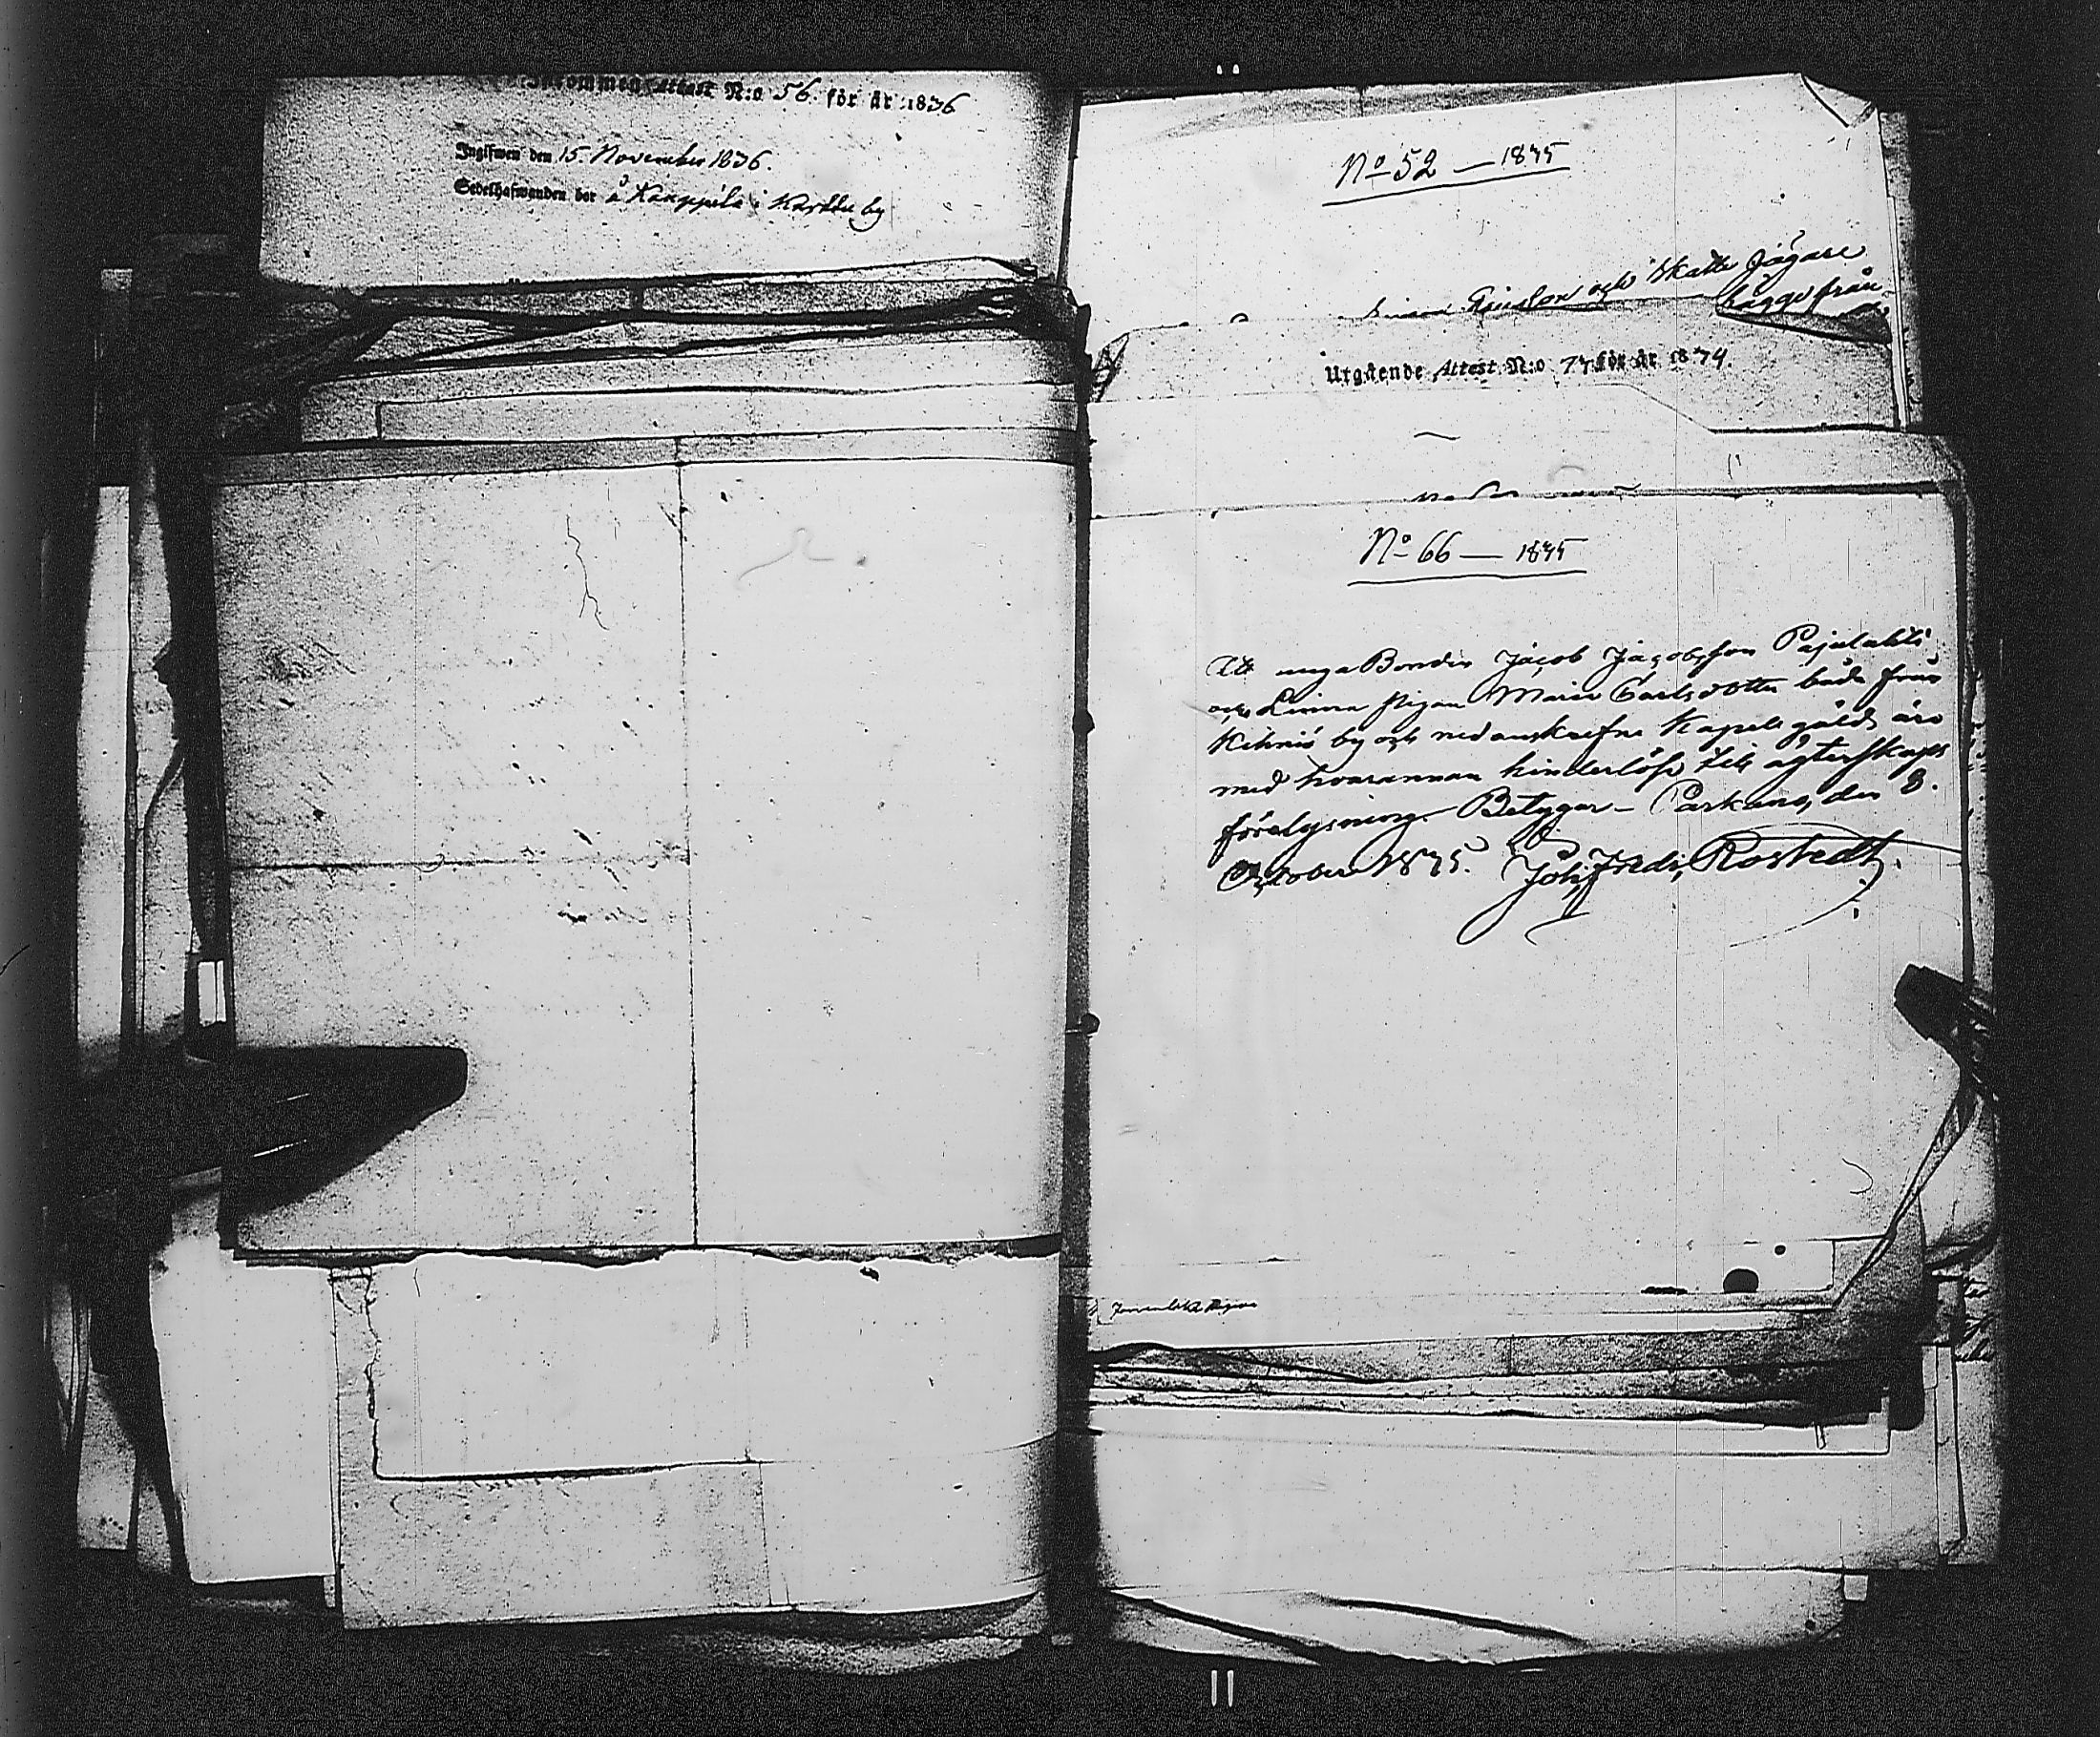 Inkommen Attest N:o 56. för år 1876
Ingifwen den 15. November 1876.
Sedelhafwanden bor å Kauppila i Karttu by
No 52 — 1875
och Skatte Jägare
bägge från
Utgående Attest N:o 77 för år 1874.
No 66 — 1875
Att unga Bonden Jacob Jacobsson Pajulahti
och Qvinno pigan Maria Carlsdotter båda från
Kihniö by och nedanskrefne Kapellgäld, äro
med hvarannan hinderlöse till ägtenskaps
förelysning. Betygar — Parkano, den 8.
October 1875. Joh. Fredr. Rostedt.